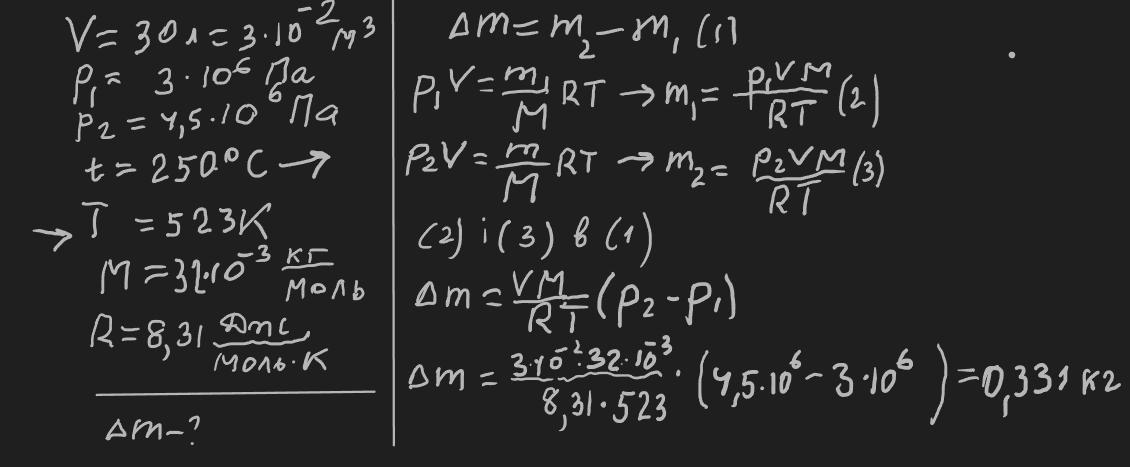 V = 30 л = 3·10⁻² м³
p₁ = 3·10⁶ Па
p₂ = 4,5·10⁶ Па
t = 250°C →
→ T = 523K
M = 32·10⁻³ кг/моль
R = 8,31 Дж/моль·К
Δm – ?
Δm = m₂ – m₁ (1)
p₁V = m₁/M RT → m₁ = p₁VM/RT (2)
p₂V = m/M RT → m₂ = p₂VM/RT (3)
(2) і (3) в (1)
Δm = VM/RT (p₂ - p₁)
Δm = 3·10⁻²·32·10⁻³/8,31·523 · (4,5·10⁶ – 3·10⁶) = 0,331 кг